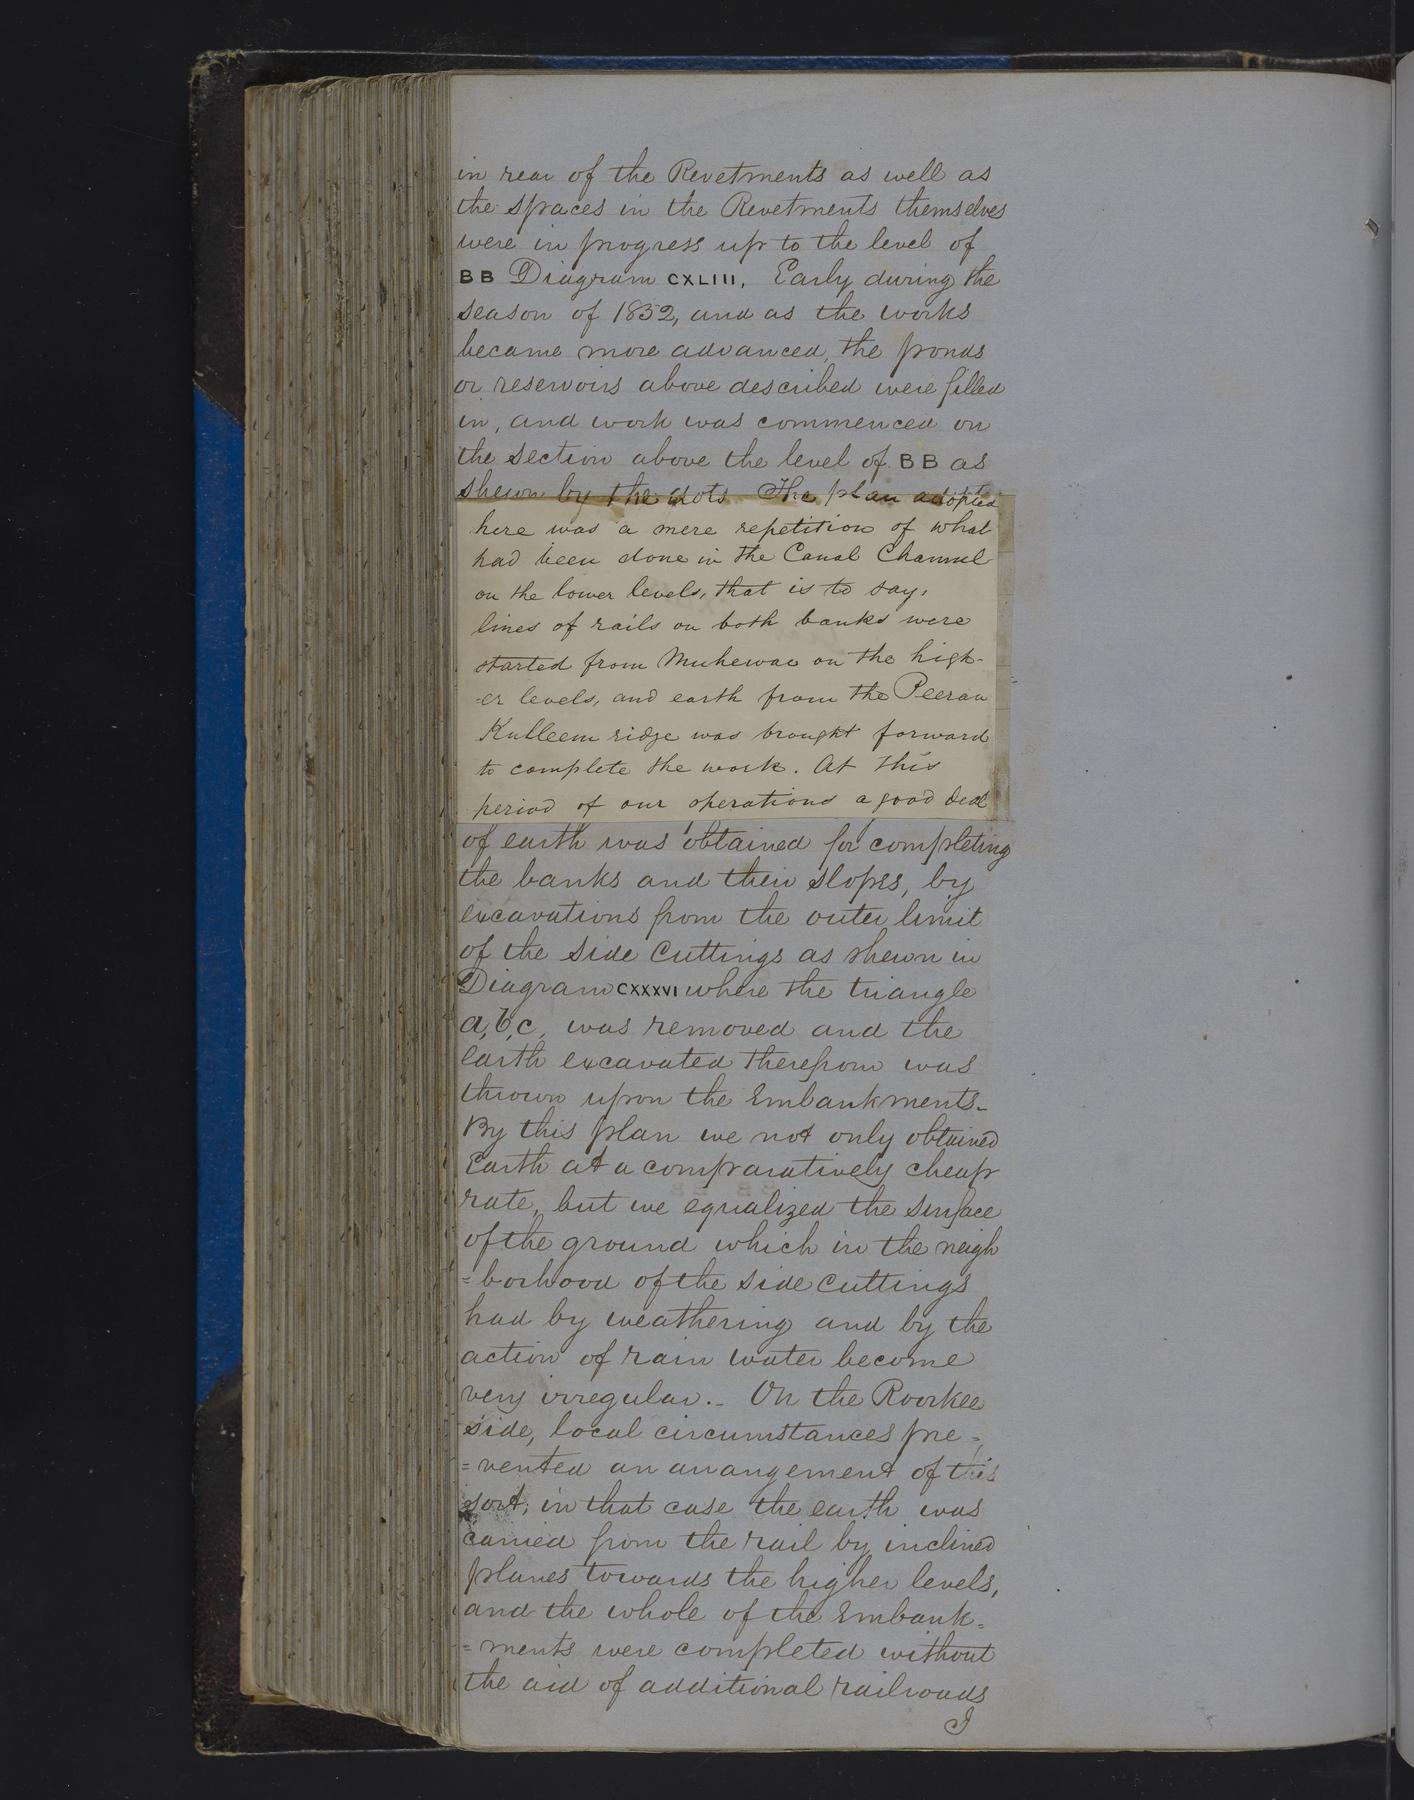 in rear of the Revetments as well as
the spaces in the Revetments themselves
were in progress up to the level of
BB Diagram CXLIII. Early during the
season of 1852, and as the works
became more advanced, the ponds
or reservoirs above described were filled
in, and work was commenced on
the section above the level of BB as
shewn by the dots The plan adopted
here was a mere repetition of what
had been done in the Canal Channel
on the lower levels, that is to say,
lines of rails on both banks were
started from Muhewar on the high-
-er levels, and earth from the Peeran
Kulleem ridge was brought forward
to complete the work. At this
period of our operations a good deal
of earth was obtained for completing
the banks and their slopes, by
excavations from the outer limit
of the side Cuttings as shewn in
Diagram CXXXVI where the triangle
a, b, c, was removed and the
earth excavated therefrom was
thrown upon the Embankments-
By this plan we not only obtained
Earth at a comparatively cheap
rate, but we equalized the surface
of the ground which in the neigh
=borhood of the side Cuttings
had by weathering and by the
action of rain water become
very irregular.- On the Roorkee
side, local circumstances pre=
=vented an arrangement of this
sort; in that case the earth was
carried from the rail by inclined
planes towards the higher levels,
and the whole of the Embank=
=ments were completed without
the aid of additional railroads
I